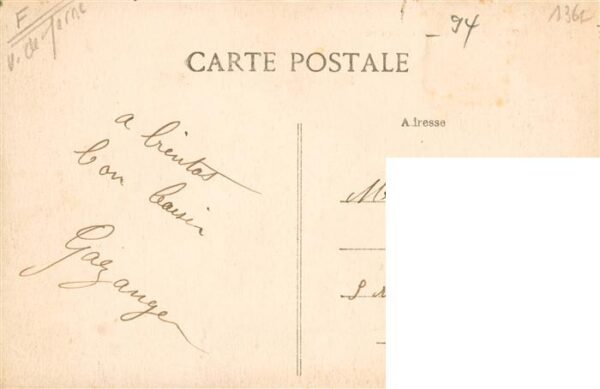 F
V. de Marne
94
136c
CARTE POSTALE
Adresse
a bientot
bon baiser
M
S M